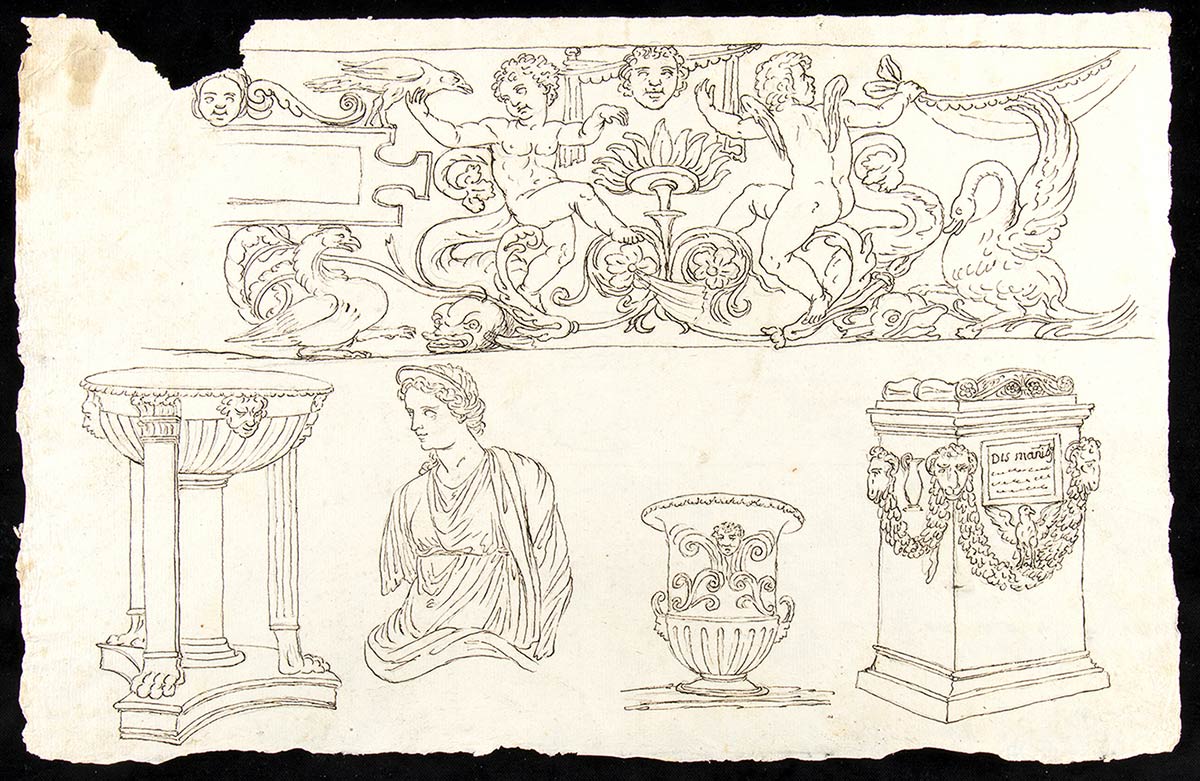 DIS maniB